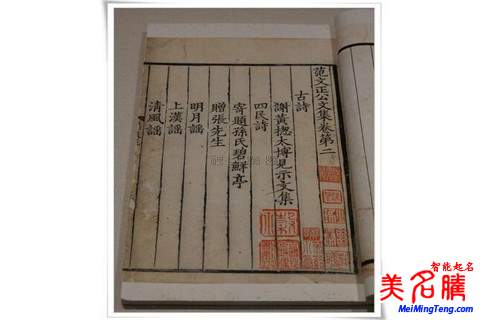 范文正公文集卷第二
古詩
謝黃揔太博見示文集
四民詩
寄題孫氏碧鮮亭
贈張先生
明月謠
上漢謠
清風謠
智能起名
美名騰
MeiMingTeng.com